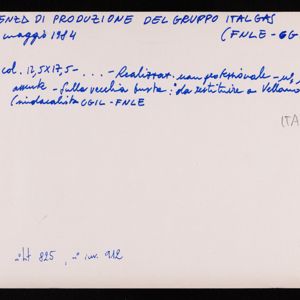 ENZA DI PRODUZIONE DEL GRUPPO ITALGAS
maggio 1984 (FNLE-GG
col. 12,5x17,5 - ... - Realizzaz. non professionale - n°,
assente - Sulla vecchia busta: "da restituire a Vellano
(sindacalista CGIL-FNLE
ITA
n° 825, n° inv. 912